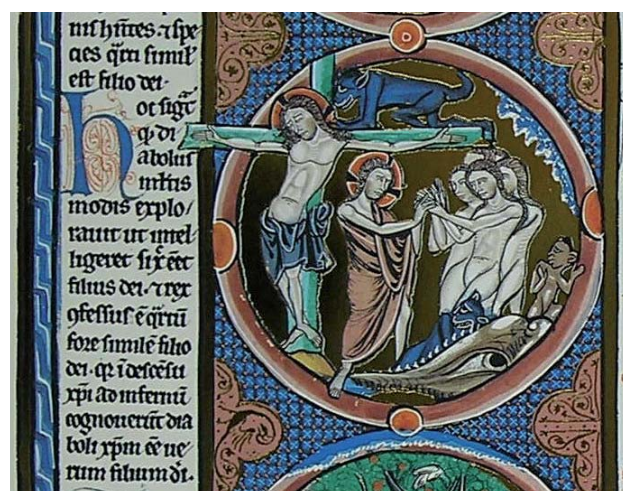 nis hñtes. ⁊ spe
cies q̃rti simil'
est filio dei.
hoc sigᵗ
q̃ di
abolus
ml'tis
modis explo/
rauit ut intel
ligeret si x̃ eet
filius dei. ⁊ rex
ꝯfessus ẽ q̃rtũ
fore similẽ filio
dei. q̃ ĩ descẽsu
xp̃i ad infernũ
cognouerũt dia
boli xp̃m ẽe ue
rum filium dĩ.